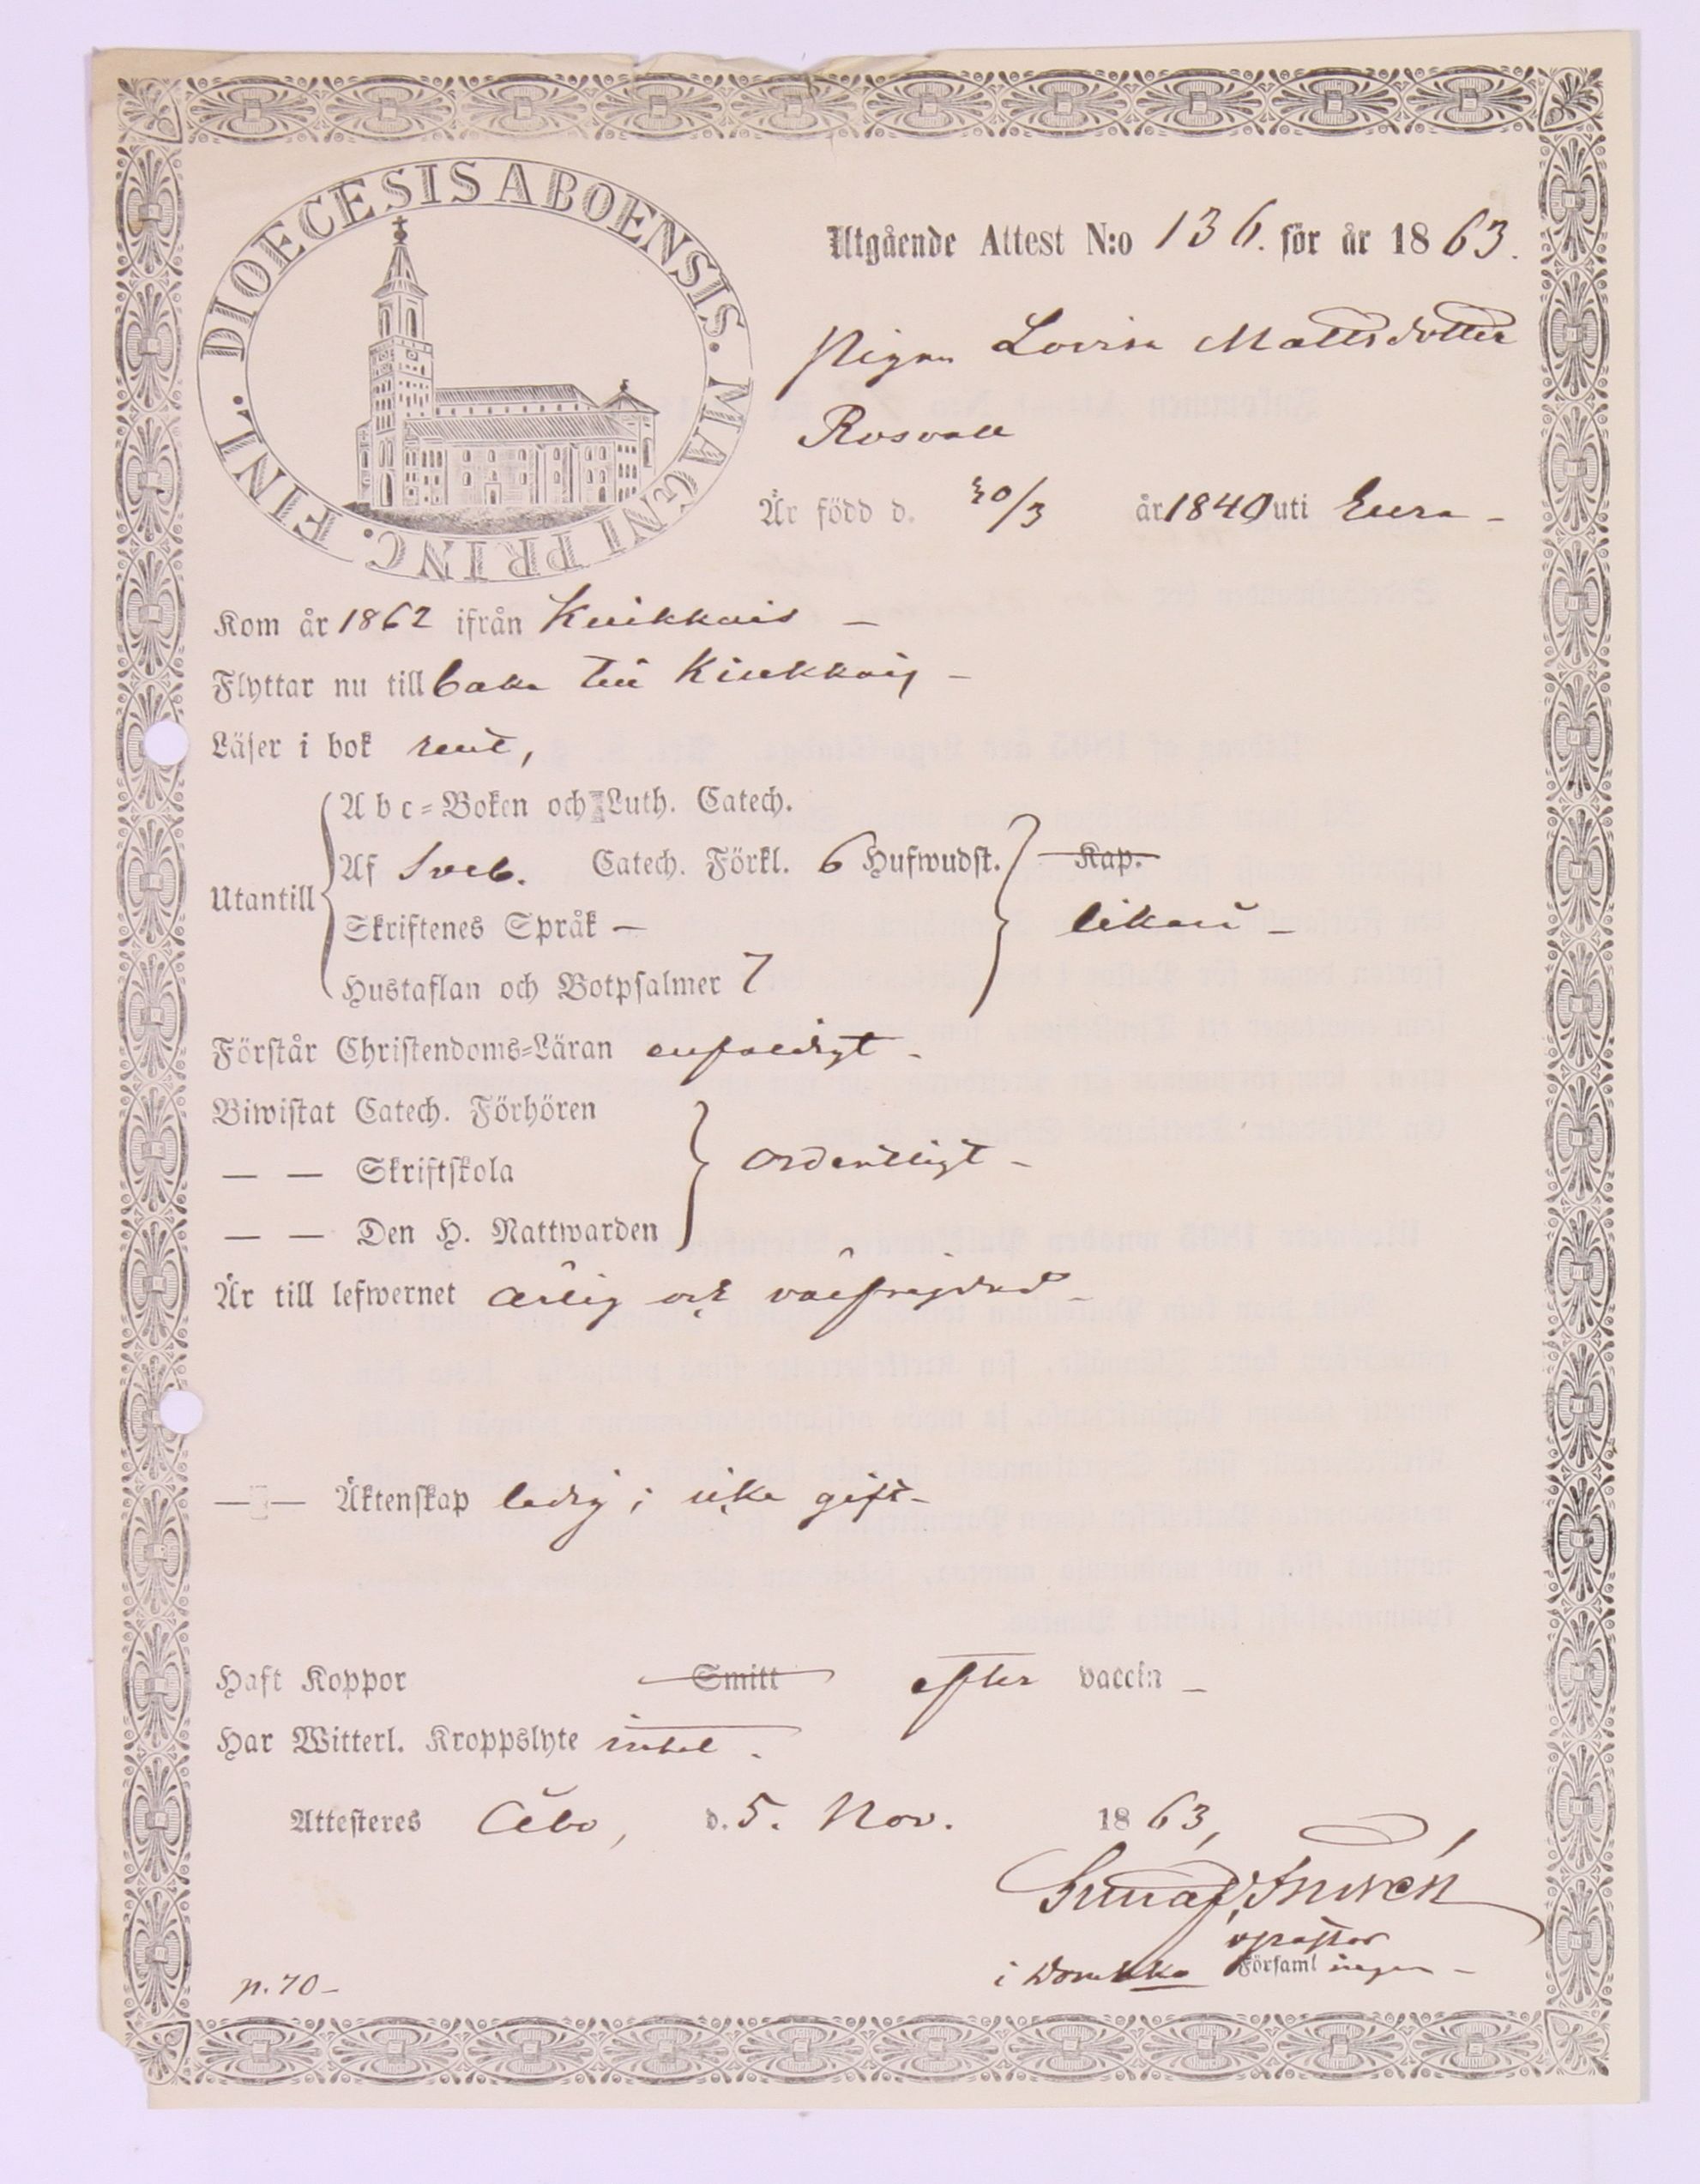 DIOECESIS ABOENSIS. MAGNI PRINC. FINL.
Utgående Attest N:o 136. för år 1863.
Pigan Lovisa Mattsdotter
Rosvall
Är född d. 30/3 år 1840 uti Eura -
Kom år 1862 ifrån Kiukkais -
Flyttar nu till baka till Kiukkais -
Läser i bok rent,
Utantill
Abc-Boken och Luth. Catech.
Af Sveb. Catech. Förkl. 6 Hufwudst. Kap.
Skriftenes Språk — likaså -
Hustaflan och Botpsalmer 7
Förstår Christendoms-Läran enfaldigt -
Biwistat Catech. Förhören
— — Skriftskola ordentligt -
— — Den H. Nattwarden
Är till lefwernet ärlig och välfrejdad -
— — Äktenskap ledig; icke gift -
Haft Koppor Smitt efter vaccin -
Har Witterl. Kroppslyte intet.
Attesteres Åbo, d. 5. Nov. 1863,
Gustaf
v pastor
i Församlingen -
p. 70 -